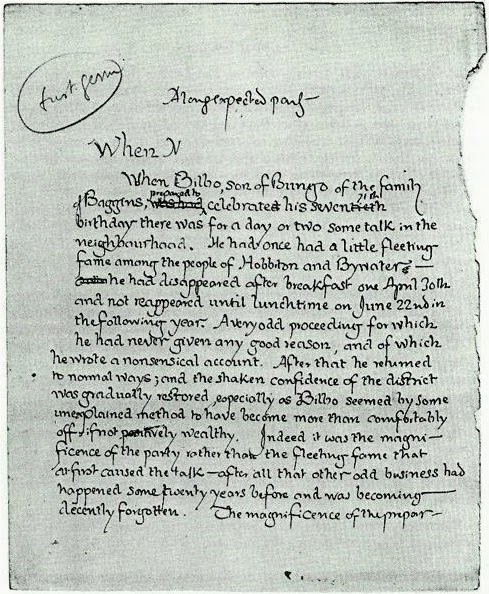 first germ
A long expected party
When N
When Bilbo, son of Bungo of the family
prepared to 71th
of Baggins, was had celebrated his seventieth
birthday there was for a day or two some talk in the
neighbourhood. He had once had a little fleeting
fame among the people of Hobbiton and Bywater —
he had disappeared after breakfast one April 30th
and not reappeared until lunchtime on June 22nd in
the following year. A very odd proceeding for which
he had never given any good reason, and of which
he wrote a nonsensical account. After that he returned
to normal ways; and the shaken confidence of the district
was gradually restored, especially as Bilbo seemed by some
unexplained method to have become more than comfortably
off, if not positively wealthy. Indeed it was the magni-
ficence of the party rather than the fleeting fame that
at first caused the talk — after all that other odd business had
happened some twenty years before and was becoming
decently forgotten. The magnificence of the prepar-